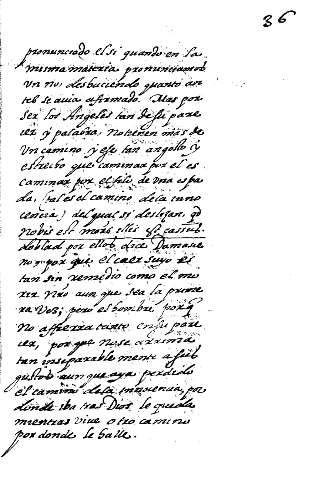 36
pronunciado el si quando en la
misma materia pronunciamos
un no, desbuciendo quanto an
tes se auia afirmado. Mas por
ser los Angeles tan de su pare
cer y palabra, no tienen mas de
un camino, y ese tan angosto y
estrecho que caminar por el es
caminar por el filo de una espa
da, (tal es el camino de la ino
cencia) del qual si deslisan,
nobis est mors illis casus.
doblad por ellos dice Damasce
no: por que el caer suyo es
tan sin remedio como el mo
rir Nro aun que sea la prime
ra vez; pero el hombre porq
no afferra tanto en su pare
cer, por que no se arrima
tan inseparable mente a sus
gustos aun que aya perdido
el camino de la innocencia, por
donde iba tras Dios, le queda
mientras vive otro camino
por donde le halle.